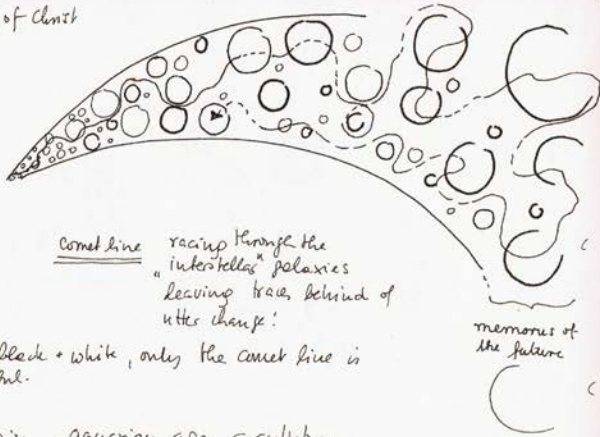 of Christ
comet line racing through the
"interstellar" galaxies
leaving traces behind of
utter change!
memories of
the future
black + white, only the comet line is
aquarian age